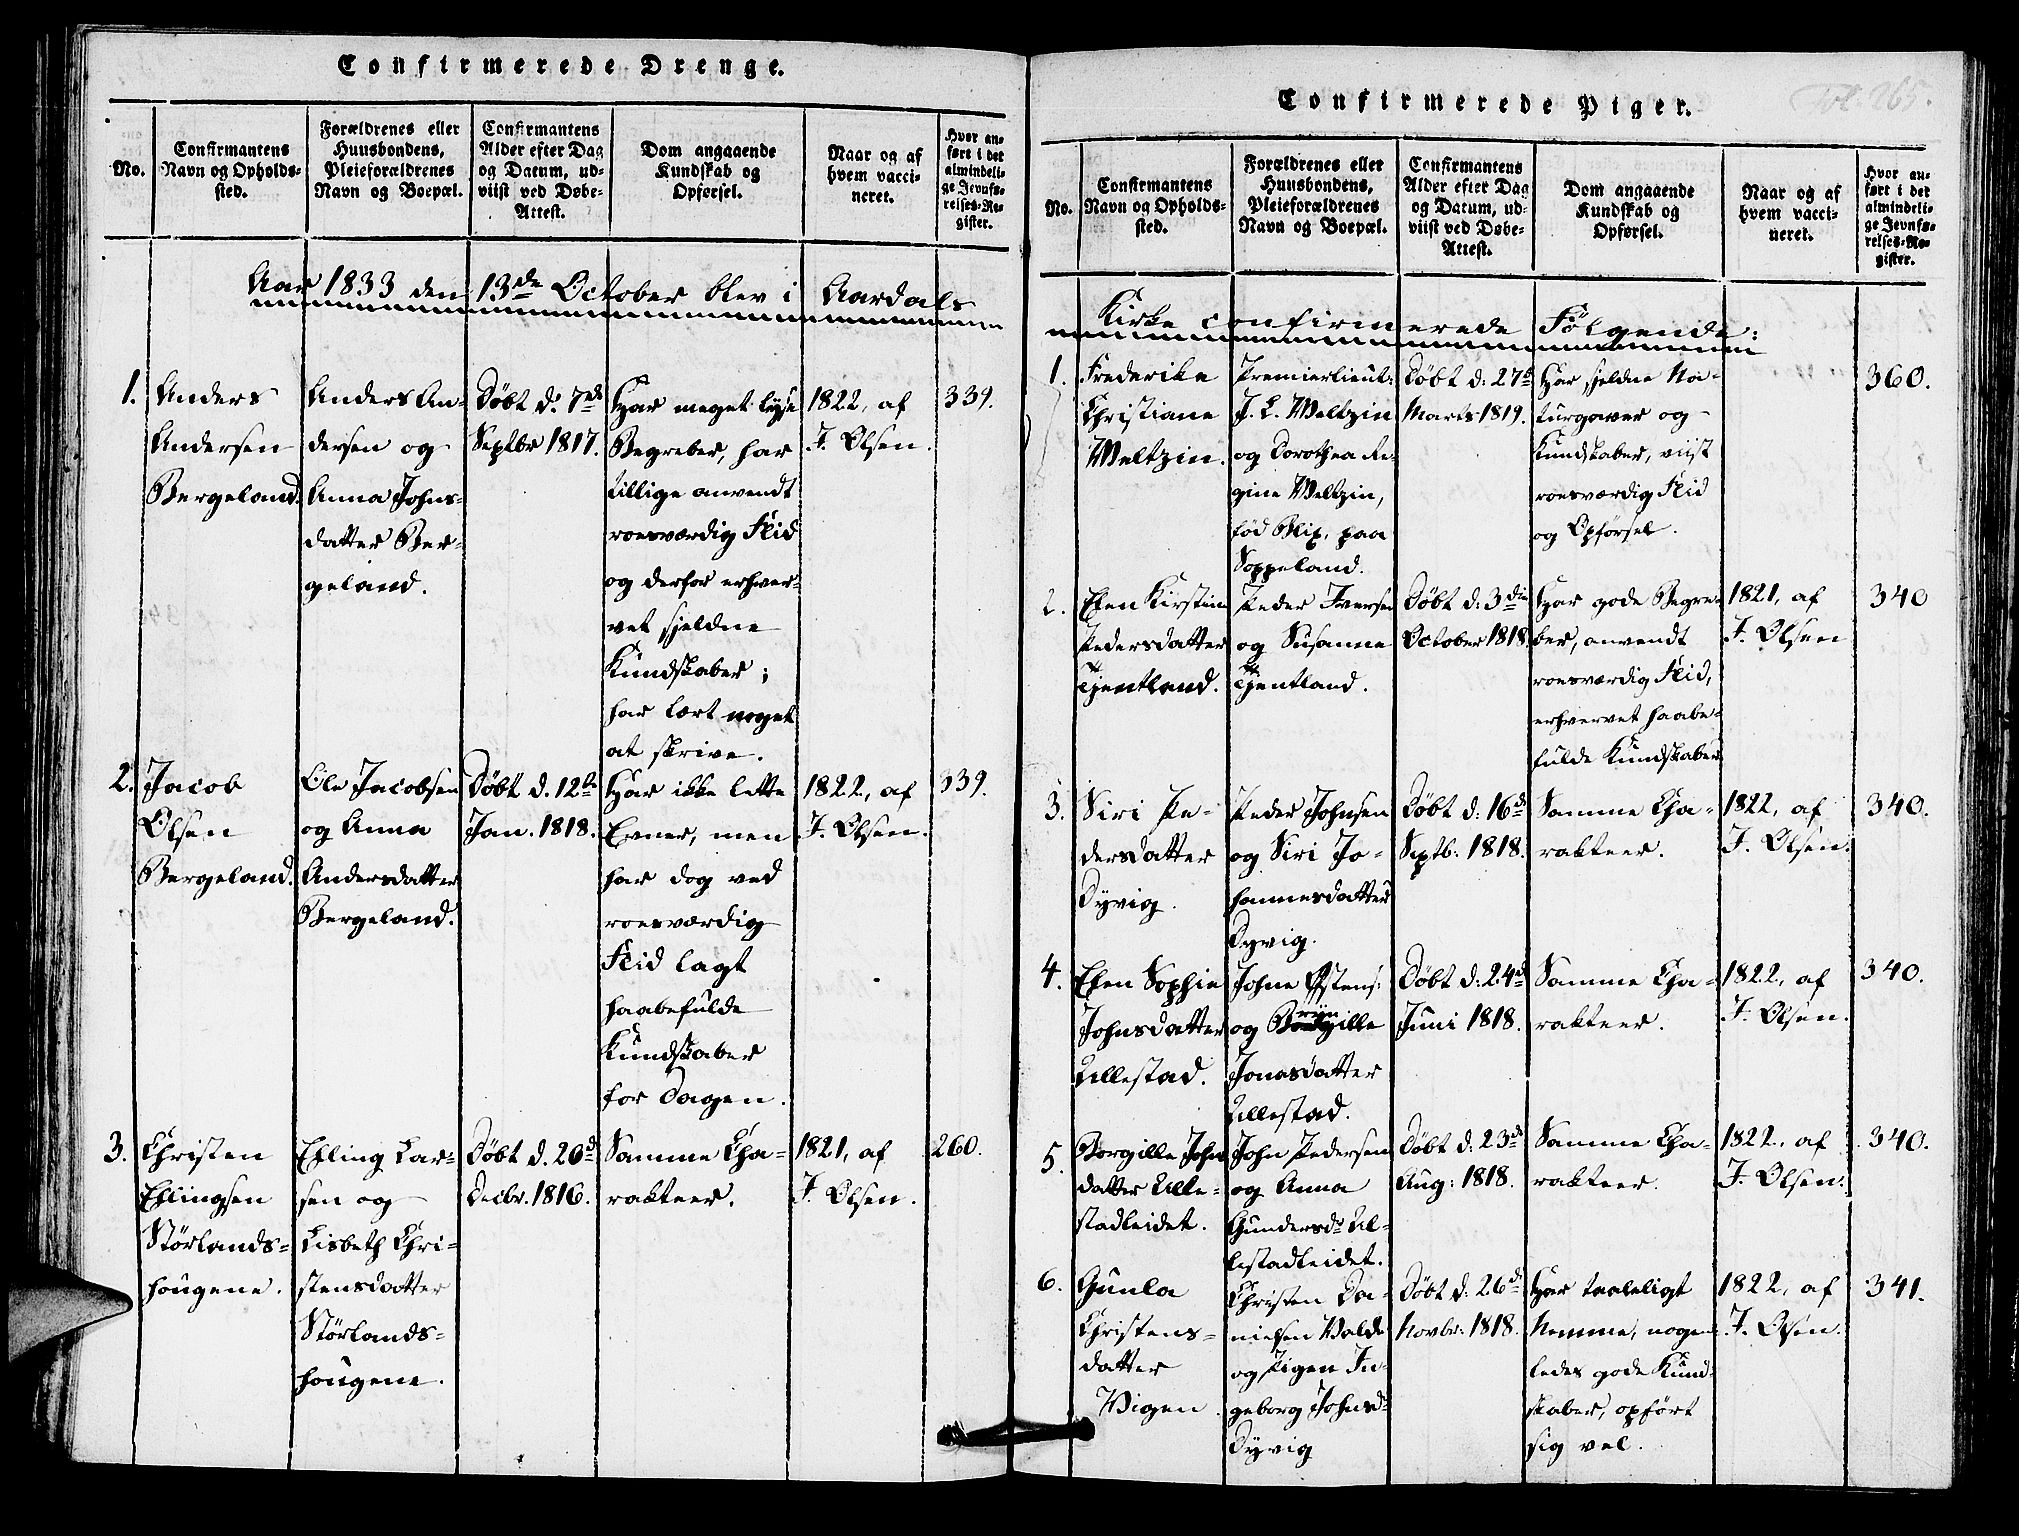 Confirmerede Drenge.
No.
Confirmantens
Navn og Opholds-
sted.
Forældrenes eller
Huusbondens,
Pleieforældrenes
Navn og Boepæl.
Confirmantens
Alder efter Dag
og Datum, ud-
viist ved Døbe-
Attest.
Dom angaaende
Kundskab og
Opførsel.
Naar og af
hvem vacci-
neret.
Hvor an-
ført i det
almindeli-
ge Jevnfø-
relses-Re-
gister.
Aar 1833 den 13de October blev i Aardals
1.
Anders
Andersen
Bergeland.
Anders An-
dersen og
Anna Johns-
datter Ber-
geland.
Døbt d: 7de
Septbr 1817.
Har meget lyse
Begreber, har
tillige anvendt
roesværdig Flid
og derfor erhver-
vet sjeldne
Kundskaber;
har lært noget
at skrive.
1822, af
J. Olsen.
339.
2.
Jacob
Olsen
Bergeland.
Ole Jacobsen
og Anna
Andersdatter
Bergeland.
Døbt d. 12te
Jan. 1818.
Har ikke lette
Evner, men
har dog ved
roesværdig
Flid lagt
haabefulde
Kundskaber
for Dagen.
1822, af
J. Olsen.
339.
3.
Christen
Ellingsen
Størlands-
hougene.
Elling Lar-
sen og
Lisbeth Chri-
stensdatter
Størlands-
hougene.
Døbt d. 26d
Decbr. 1816.
Samme Cha-
rakteer.
1821, af
J. Olsen.
260.
Confirmerede Piger.
Fol. 265.
No.
Confirmantens
Navn og Opholds-
sted.
Forældrenes eller
Huusbondens,
Pleieforældrenes
Navn og Boepæl.
Confirmantens
Alder efter Dag
og Datum, ud-
viist ved Døbe-
Attest.
Dom angaaende
Kundskab og
Opførsel.
Naar og af
hvem vacci-
neret.
Hvor an-
ført i det
almindeli-
ge Jevnfø-
relses-Re-
gister.
Kirke confirmerede Følgende:
1.
Frederike
Christiane
Weltzin.
Premierlieut:
J. L. Weltzin
og Dorothea Re-
gine Weltzin,
fød Blix, paa
Soppeland.
Døbt d: 27d
Marts 1819.
Har sjeldne Na-
turgaver og
Kundskaber, viist
roesværdig Flid
og Opførsel.
360.
2.
Elen Kirstine
Pedersdatter
Tjentland.
Peder Iversen
og Susanne
Tjentland.
Døbt d: 3die
October 1818.
Har gode Begre-
ber, anvendt
roesværdig Flid,
erhvervet haabe-
fulde Kundskaber
1821, af
J. Olsen
340
3.
Siri Pe-
dersdatter
Dyvig.
Peder Johnsen
og Siri Jo-
hannesdatter
Dyvig.
Døbt d: 16d
Septb: 1818.
Samme Cha-
rakteer.
1822, af
J. Olsen.
340.
4.
Elen Sophie
Johnsdatter
Ullestad.
Johne Østens:
og Borgille
Jonasdatter
Ullestad.
Døbt d: 24d
Juni 1818.
Samme Cha-
rakteer.
1822, af
J. Olsen.
340.
5.
Borgille Johns
datter Ulle-
stadleidet.
John Pedersen
og Anna
Gundersdr Ul-
lestadleidet.
Døbt d: 23d
Aug: 1818.
Samme Cha-
rakteer.
1822, af
J. Olsen.
340.
6.
Gunla
Christens-
datter
Wigen.
Christen Da-
nielsen Walde
og Pigen In-
geborg Johnsd
Dyvig
Døbt d: 26d
Novbr: 1818.
Har taaleligt
Nemme, nogen-
ledes gode Kund-
skaber, opført
sig vel.
1822, af
J. Olsen.
341.